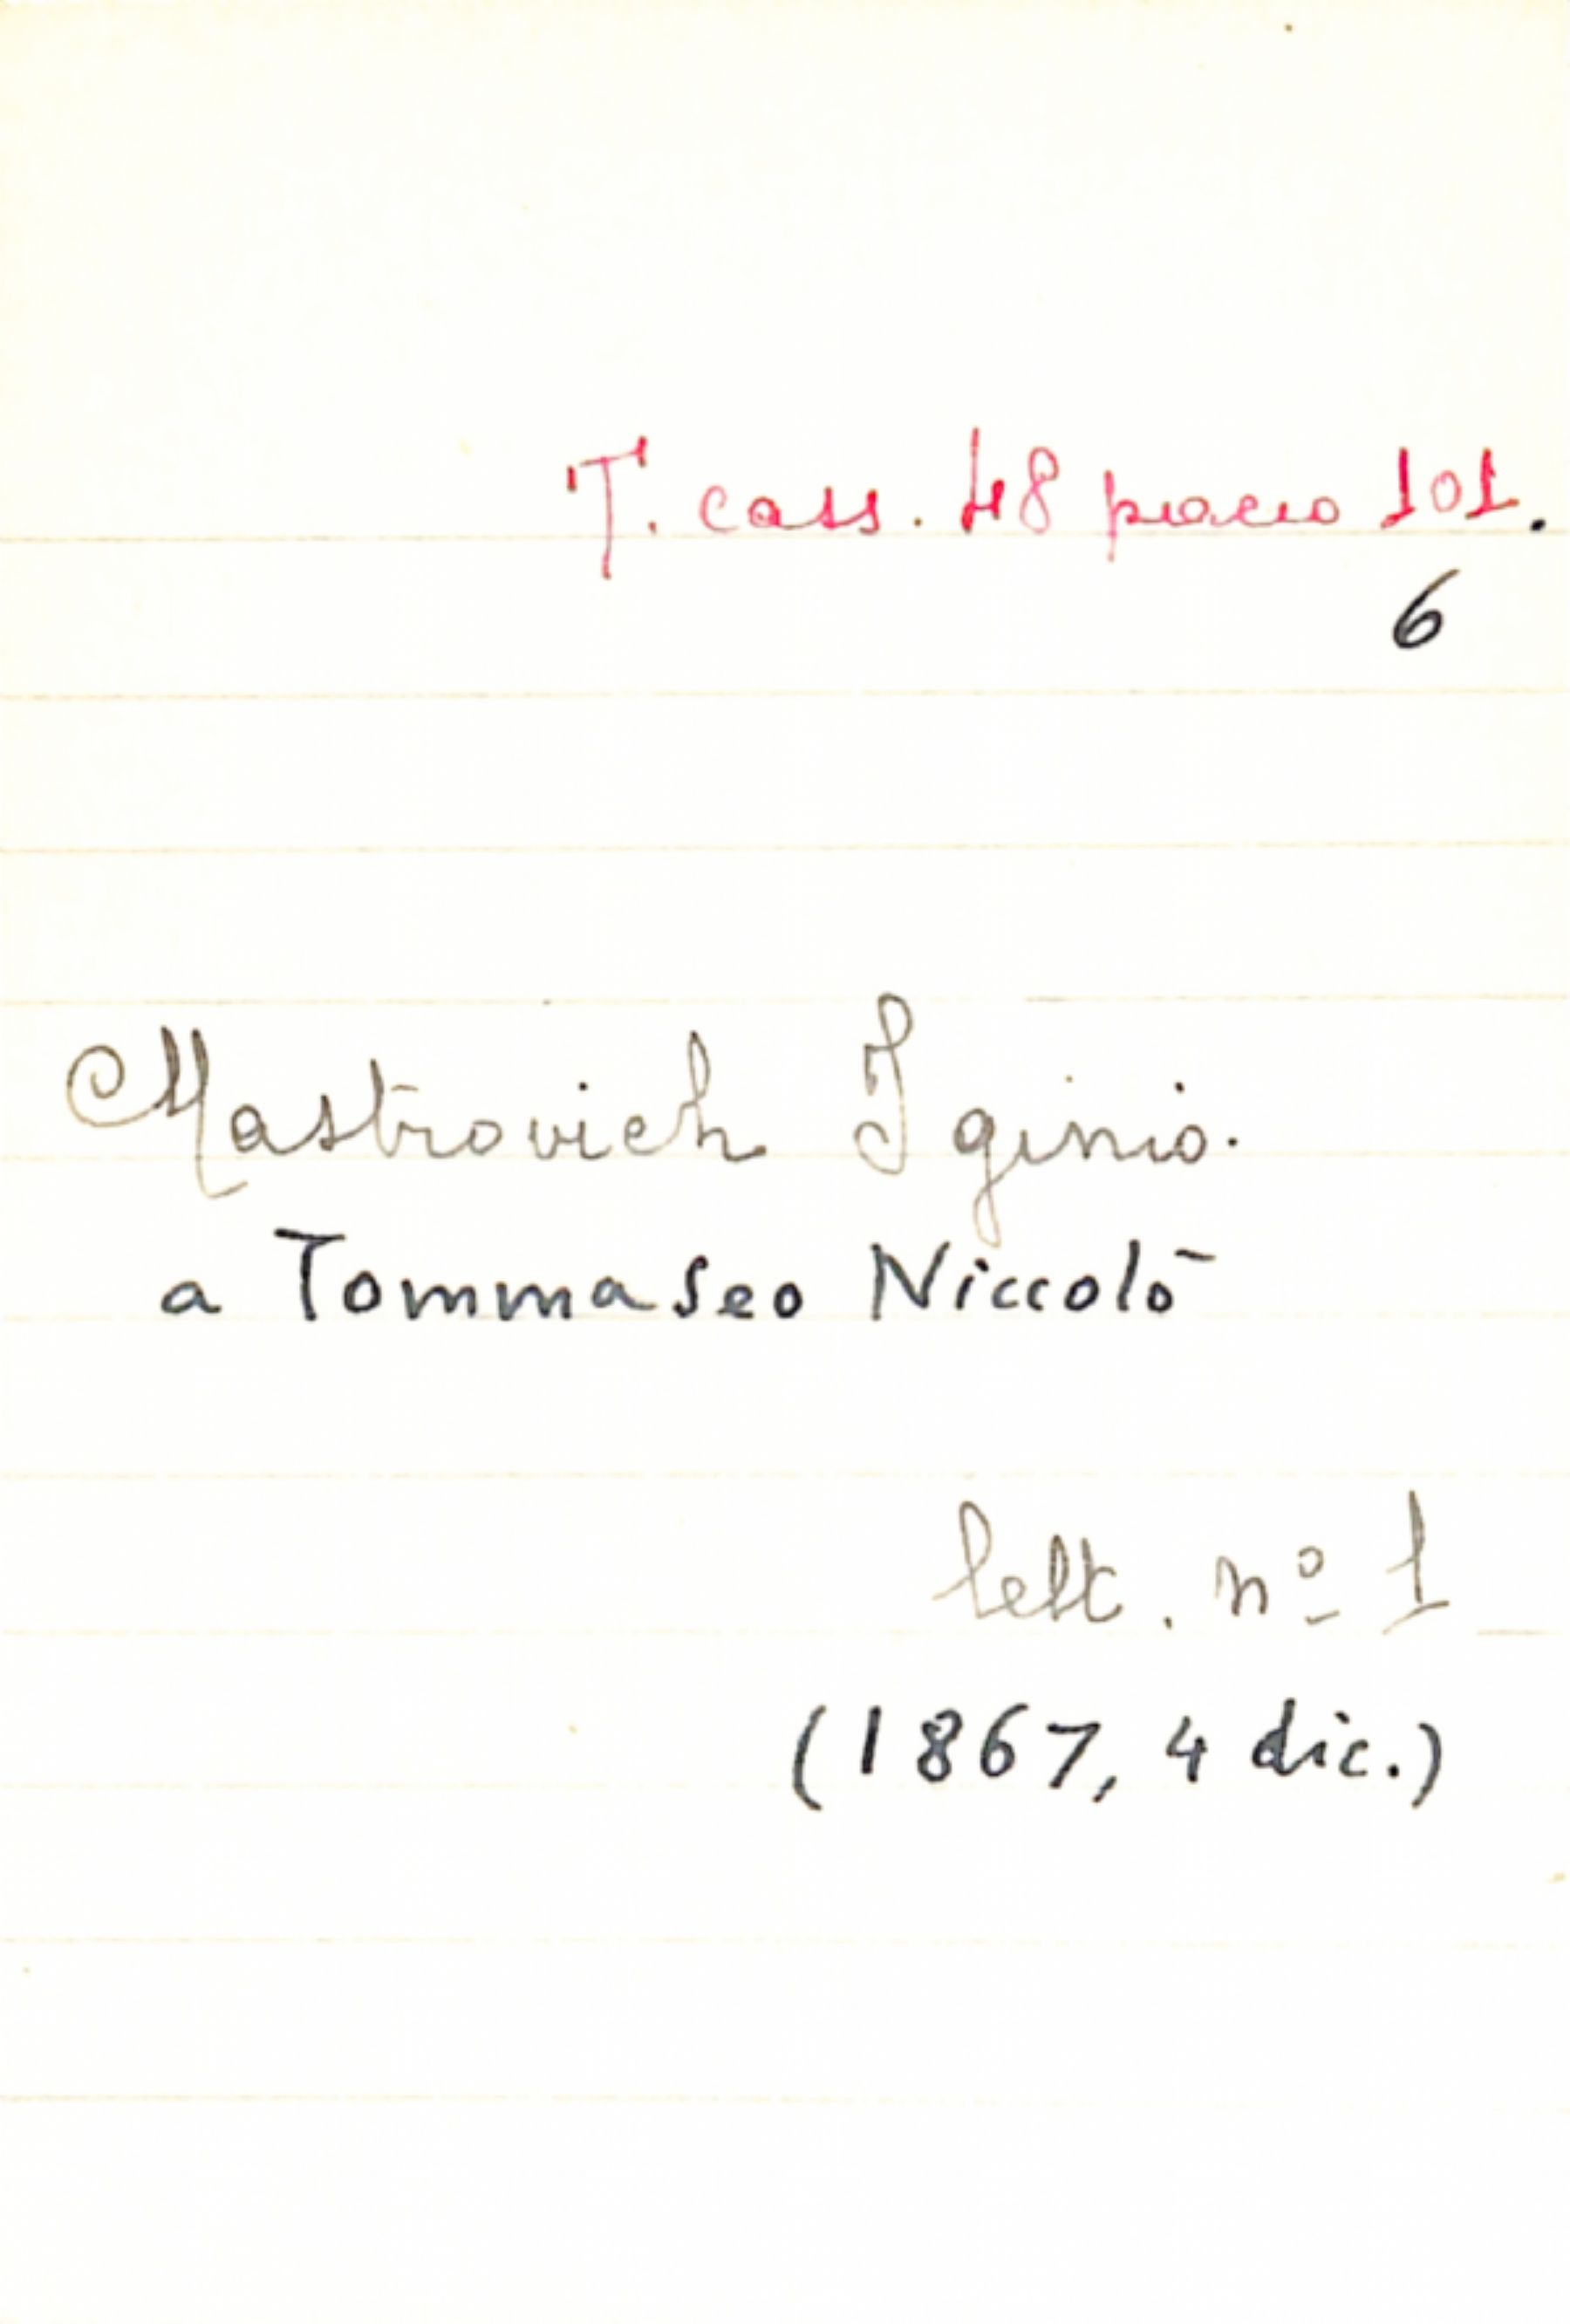 T. cass. 48 pacco 101.
6
Mastrovich Iginio.
a Tommaseo Niccolò
lett. nº 1
(1867, 4 dic.)